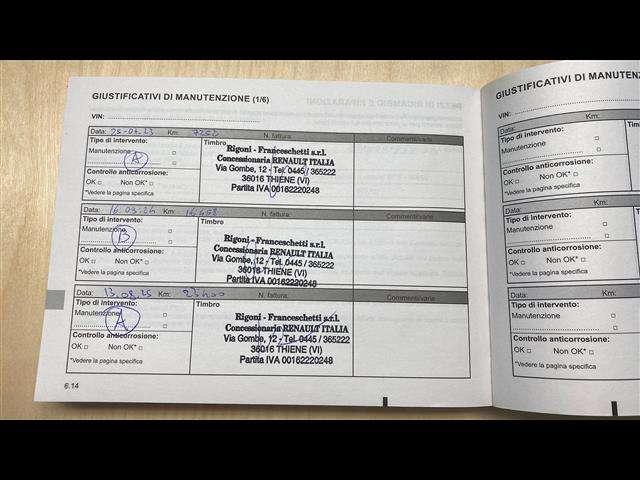 GIUSTIFICATIVI DI MANUTENZIONE (1/6)
VIN:
Data: 25-07.23 Km: 7252 N. fattura: Commenti/varie
Tipo di intervento: Timbro
Manutenzione □
A □
Controllo anticorrosione:
OK □ Non OK* □
*Vedere la pagina specifica
Rigoni - Franceschetti s.r.l.
Concessionaria RENAULT ITALIA
Via Gombe, 12 - Tel. 0445 / 365222
36016 THIENE (VI)
Partita IVA 00162220248
Data: Km: N. fattura: Commenti/varie
Tipo di intervento: Timbro
Manutenzione □
B □
Controllo anticorrosione:
OK □ Non OK* □
*Vedere la pagina specifica
Rigoni - Franceschetti s.r.l.
Concessionaria RENAULT ITALIA
Via Gombe, 12 - Tel. 0445 / 365222
36016 THIENE (VI)
Partita IVA 00162220248
Data: 13.08.25 Km: 23400 N. fattura: Commenti/varie
Tipo di intervento: Timbro
Manutenzione □
A □
Controllo anticorrosione:
OK □ Non OK* □
*Vedere la pagina specifica
Rigoni - Franceschetti s.r.l.
Concessionaria RENAULT ITALIA
Via Gombe, 12 - Tel. 0445 / 365222
36016 THIENE (VI)
Partita IVA 00162220248
6.14
GIUSTIFICATIVI DI
VIN:
Data: Km:
Tipo di intervento:
Manutenzione □
□
Controllo anticorrosione:
OK □ Non OK* □
*Vedere la pagina specifica
Data: Km:
Tipo di intervento:
Manutenzione □
□
Controllo anticorrosione:
OK □ Non OK* □
*Vedere la pagina specifica
Data: Km:
Tipo di intervento:
Manutenzione □
□
Controllo anticorrosione:
OK □ Non OK* □
*Vedere la pagina specifica